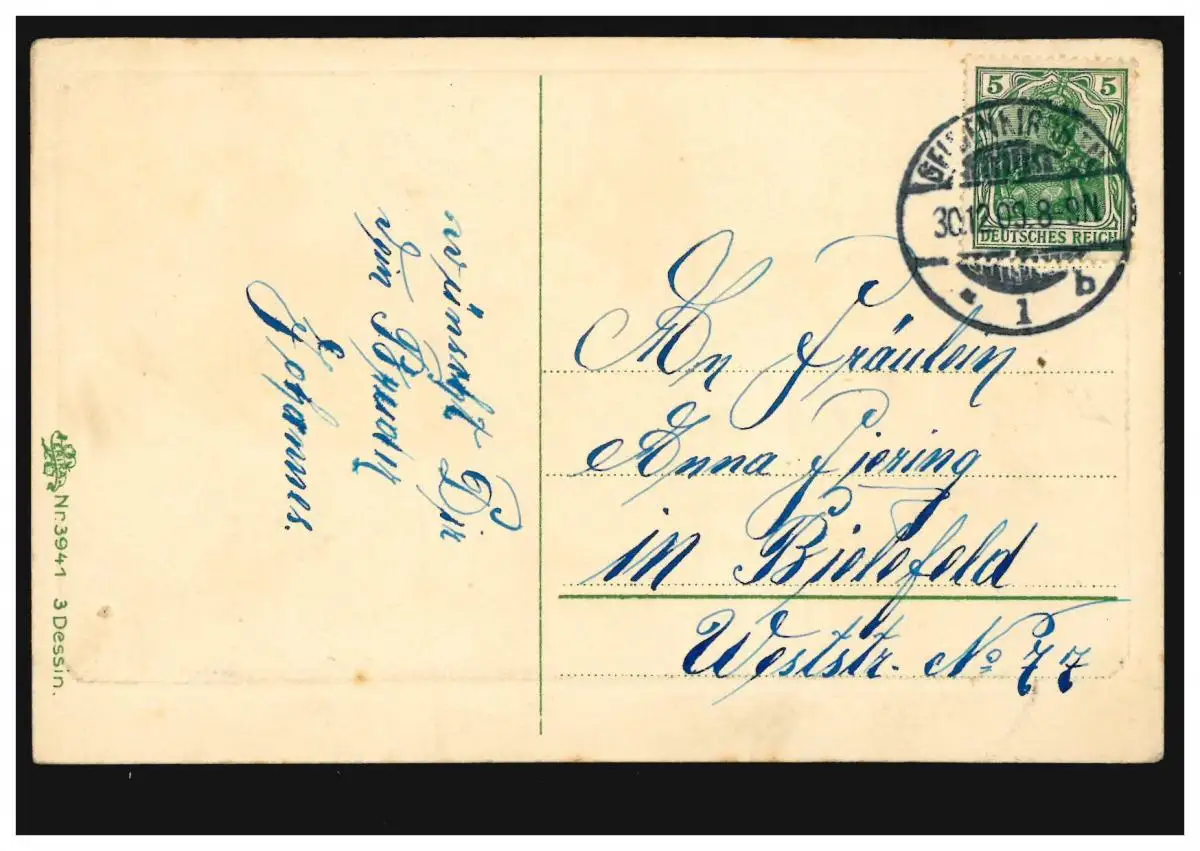 wünscht Dir
dein Bruder
Johannes.
5 5
DEUTSCHES REICH
GELSENKIRCHEN
30.12.09. 8-9N
* 1 b
An Fräulein
Anna
in Bielefeld
Weststr. No 77
Nr. 3941 3 Dessin.